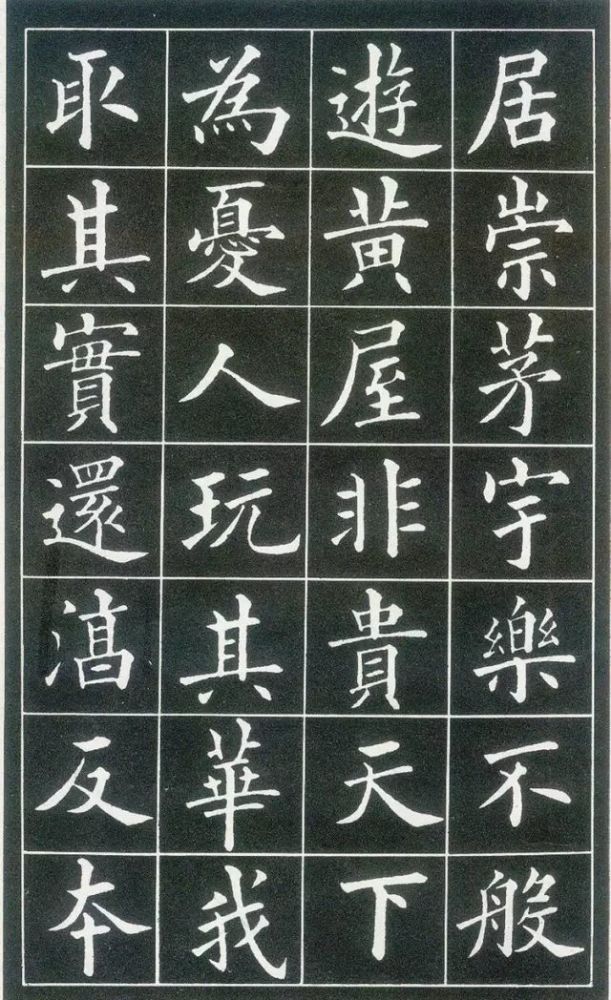 居崇茅宇樂不般
遊黄屋非貴天下
為憂人玩其華我
取其實還淳反本